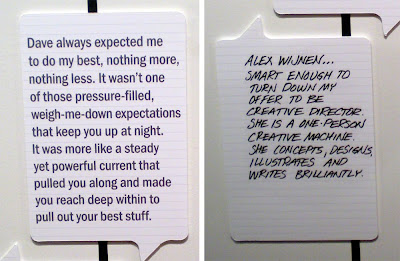 Dave always expected me
to do my best, nothing more,
nothing less. It wasn't one
of those pressure-filled,
weigh-me-down expectations
that keep you up at night.
It was more like a steady
yet powerful current that
pulled you along and made
you reach deep within to
pull out your best stuff.
ALEX WIJNEN...
SMART ENOUGH TO
TURN DOWN MY
OFFER TO BE
CREATIVE DIRECTOR.
SHE IS A ONE-PERSON
CREATIVE MACHINE.
SHE CONCEPTS, DESIGNS,
ILLUSTRATES AND
WRITES BRILLIANTLY.